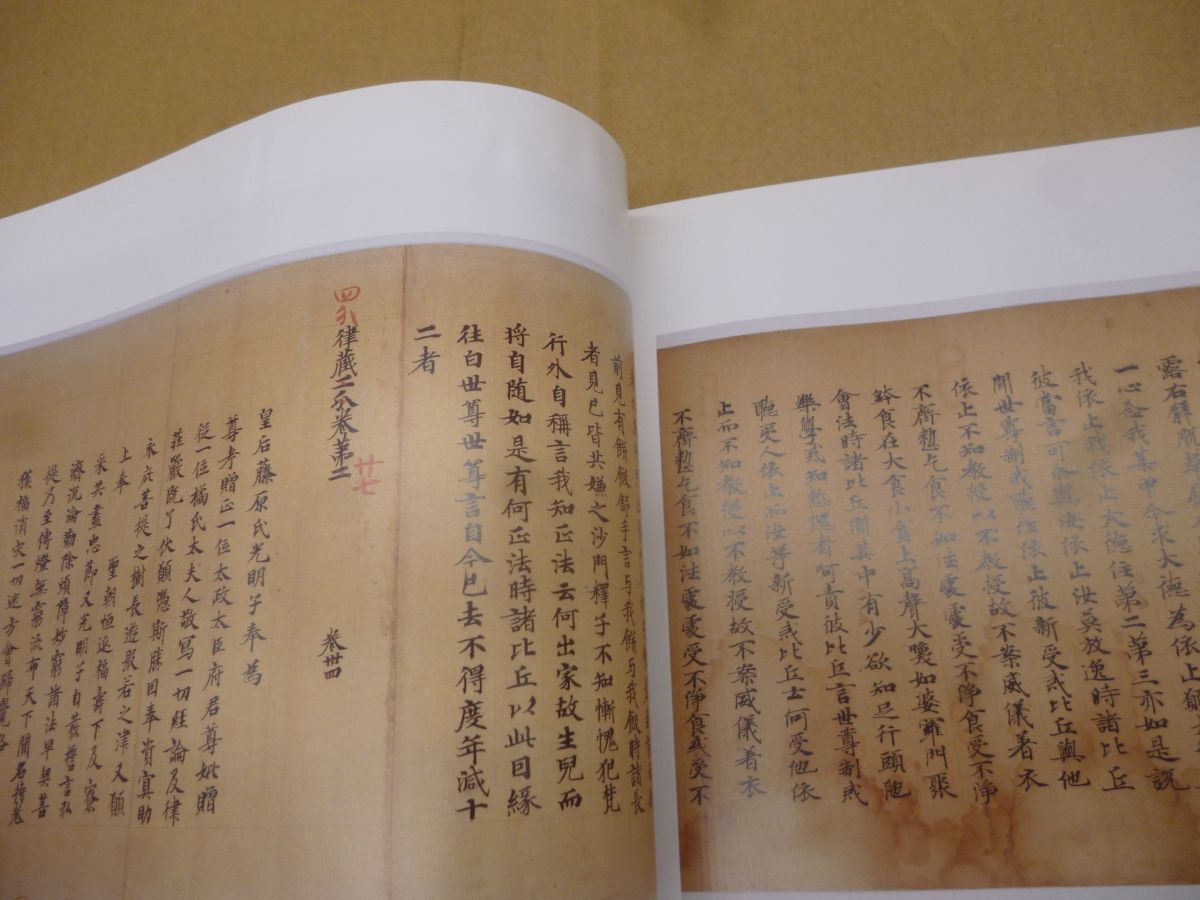 露右臂脚
一心念我某甲今求大德為依止願
我依止我依止大德住第二第三亦如是説
彼當言可尒與汝依止汝莫放逸時諸比丘
聞世尊制戒聽依止彼新受戒比丘與他
依止不知教授以不教授故不案威儀著衣
不齊整乞食不如法處處受不淨食受不淨
鉢食在大食小食上高聲大喚如婆羅門張
會法時諸比丘聞其中有少欲知足行頭陁
樂學戒知慙愧者呵責彼比丘言世尊制戒
聽受人依止而汝等新受戒比丘云何受他依
止而不知教授以不教授故不案威儀著衣
不齊整乞食不如法處處受不淨食或受不
前見有餅飯舒手言与我餅与我飯時諸長
者見已皆共嫌之沙門釋子不知慚愧犯梵
行外自稱言我知正法云何出家故生兒而
将自随如是有何正法時諸比丘以此因緣
往白世尊世尊言自今已去不得度年減十
二者
四分律藏二分卷第二
廿七
卷卅四
皇后藤原氏光明子奉為
尊考贈正一位太政太臣府君尊妣贈
從一位橘氏太夫人敬寫一切經論及律
莊嚴既了伏願憑斯勝因奉資冥助
永庇菩提之樹長遊般若之津又願
上奉
聖朝恒延福壽下及寮
采共盡忠節又光明子自發誓言弘
濟沉淪勤除煩障妙窮諸法早契菩
提乃至傳燈無窮流布天下聞名持卷
獲福消灾一切迷方會歸覺路